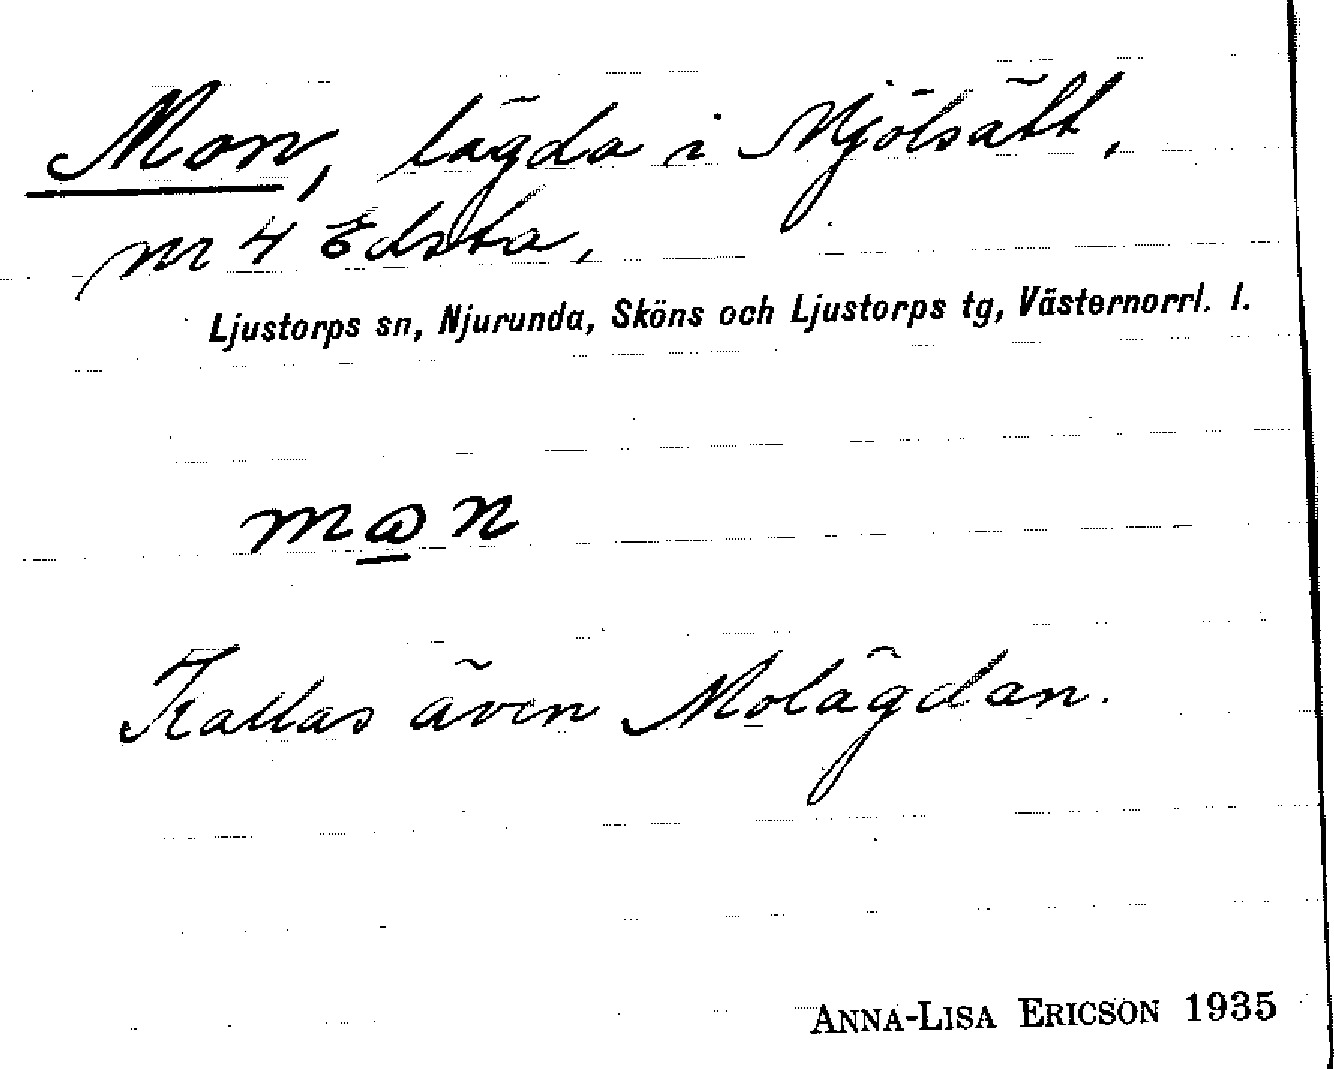 Mon, lägda i Mjölsätt,
nr 4 Edsta.
Ljustorps sn, Njurunda, Sköns och Ljustorps tg, Västernorrl. l.
Kallas även Molägdan.
ANNA-LISA ERICSON 1935